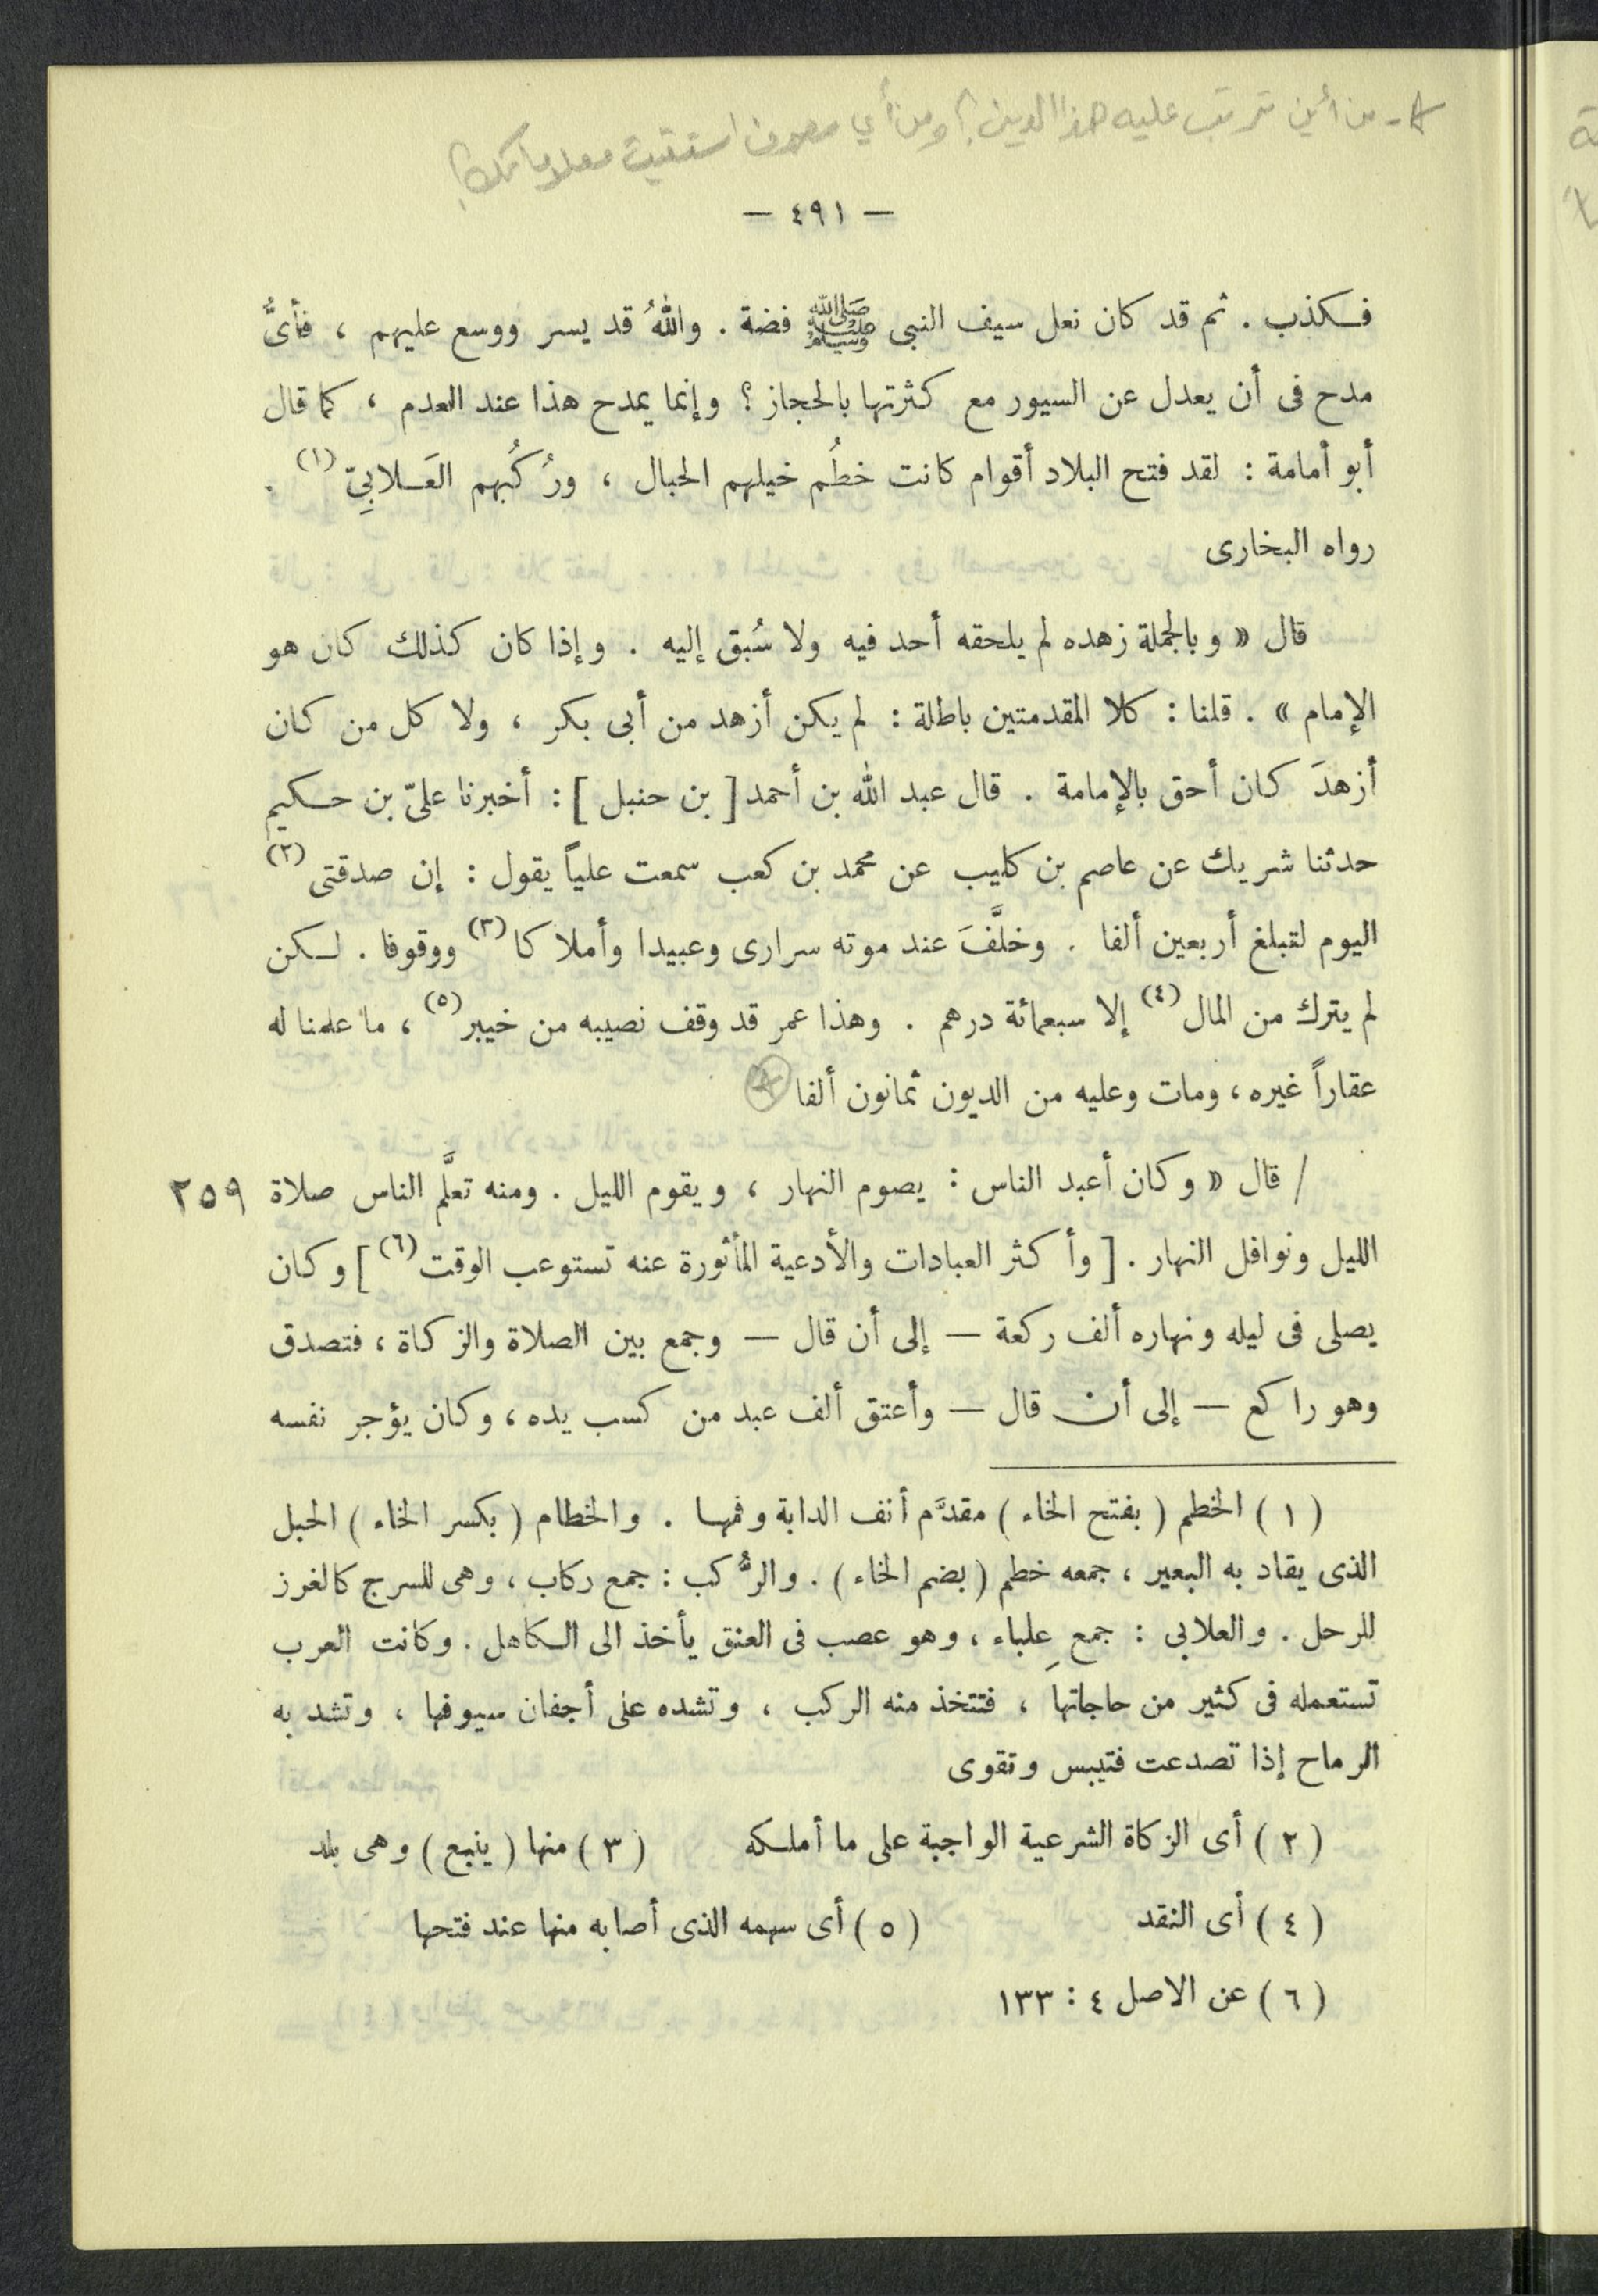 *- من أين ترتب عليه هذا الدين؟ ومن أي مصدر استقيت معلوماتك؟
— ٤٩١ —
فكذب . ثم قد كان نعل سيف النبى ﷺ فضة . واللهُ قد يسر ووسع عليهم ، فأىُّ
مدح فى أن يعدل عن السيور مع كثرتها بالحجاز ؟ وإنما يمدح هذا عند العدم ، كما قال
أبو أمامة : لقد فتح البلاد أقوام كانت خطُم خيلهم الحبال ، ورُكُبهم العَلابِىّ (١) .
رواه البخارى
قال « وبالجملة زهده لم يلحقه أحد فيه ولا سُبق إليه . وإذا كان كذلك كان هو
الإمام » . قلنا : كلا المقدمتين باطلة : لم يكن أزهد من أبى بكر ، ولا كل من كان
أزهدَ كان أحق بالإمامة . قال عبد الله بن أحمد [ بن حنبل ] : أخبرنا علىّ بن حكيم
حدثنا شريك عن عاصم بن كليب عن محمد بن كعب سمعت علياً يقول : إن صدقتى (٢)
اليوم لتبلغ أربعين ألفا . وخلَّفَ عند موته سرارى وعبيدا وأملاكا (٣) ووقوفا . لكن
لم يترك من المال (٤) إلا سبعمائة درهم . وهذا عمر قد وقف نصيبه من خيبر (٥) ، ما علمنا له
عقاراً غيره ، ومات وعليه من الديون ثمانون ألفا *
/ قال « وكان أعبد الناس : يصوم النهار ، ويقوم الليل . ومنه تعلَّم الناس صلاة ٢٥٩
الليل ونوافل النهار . [ وأكثر العبادات والأدعية المأثورة عنه تستوعب الوقت (٦) ] وكان
يصلى فى ليله ونهاره ألف ركعة — إلى أن قال — وجمع بين الصلاة والزكاة ، فتصدق
وهو راكع — إلى أن قال — وأعتق ألف عبد من كسب يده ، وكان يؤجر نفسه
( ١ ) الخطم ( بفتح الخاء ) مقدَّم أنف الدابة وفمها . والخطام ( بكسر الخاء ) الحبل
الذى يقاد به البعير ، جمعه خطم ( بضم الخاء ) . والرُّكب : جمع ركاب ، وهى للسرج كالغرز
للرحل . والعلابى : جمع عِلباء ، وهو عصب فى العنق يأخذ الى الكاهل . وكانت العرب
تستعمله فى كثير من حاجاتها ، فتتخذ منه الركب ، وتشده على أجفان سيوفها ، وتشد به
الرماح إذا تصدعت فتيبس وتقوى
( ٢ ) أى الزكاة الشرعية الواجبة على ما أملكه ( ٣ ) منها ( ينبع ) وهى بلد
( ٤ ) أى النقد ( ٥ ) أى سهمه الذى أصابه منها عند فتحها
( ٦ ) عن الاصل ٤ : ١٣٣